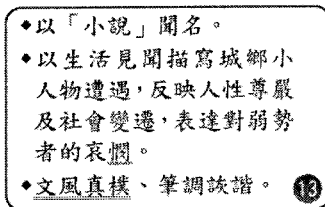 ◆以「小說」聞名。
◆以生活見聞描寫城鄉小
人物遭遇，反映人性尊嚴
及社會變遷，表達對弱勢
者的哀憫。
◆文風真樸、筆調詼諧。 ⓭